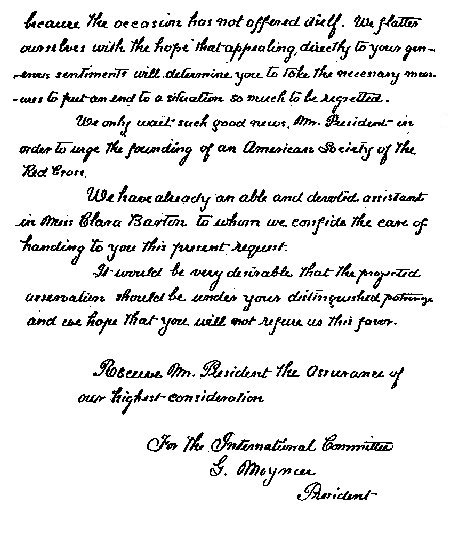 because the occasion has not offered itself. We flatter
ourselves with the hope that appealing, directly to your gen-
-erous sentiments will determine you to take the necessary meas-
-ures to put an end to a situation so much to be regretted.
We only wait such good news, Mr. President in
order to urge the founding of an American Society of the
Red Cross.
We have already an able and devoted assistant
in Miss Clara Barton to whom we confide the care of
handing to you this present request.
It would be very desirable that the projected
asservation should be under your distinguished patronage
and we hope that you will not refuse us this favor.
Receive Mr. President the Assurance of
our highest consideration
For the International Committee
G. Moynier
President